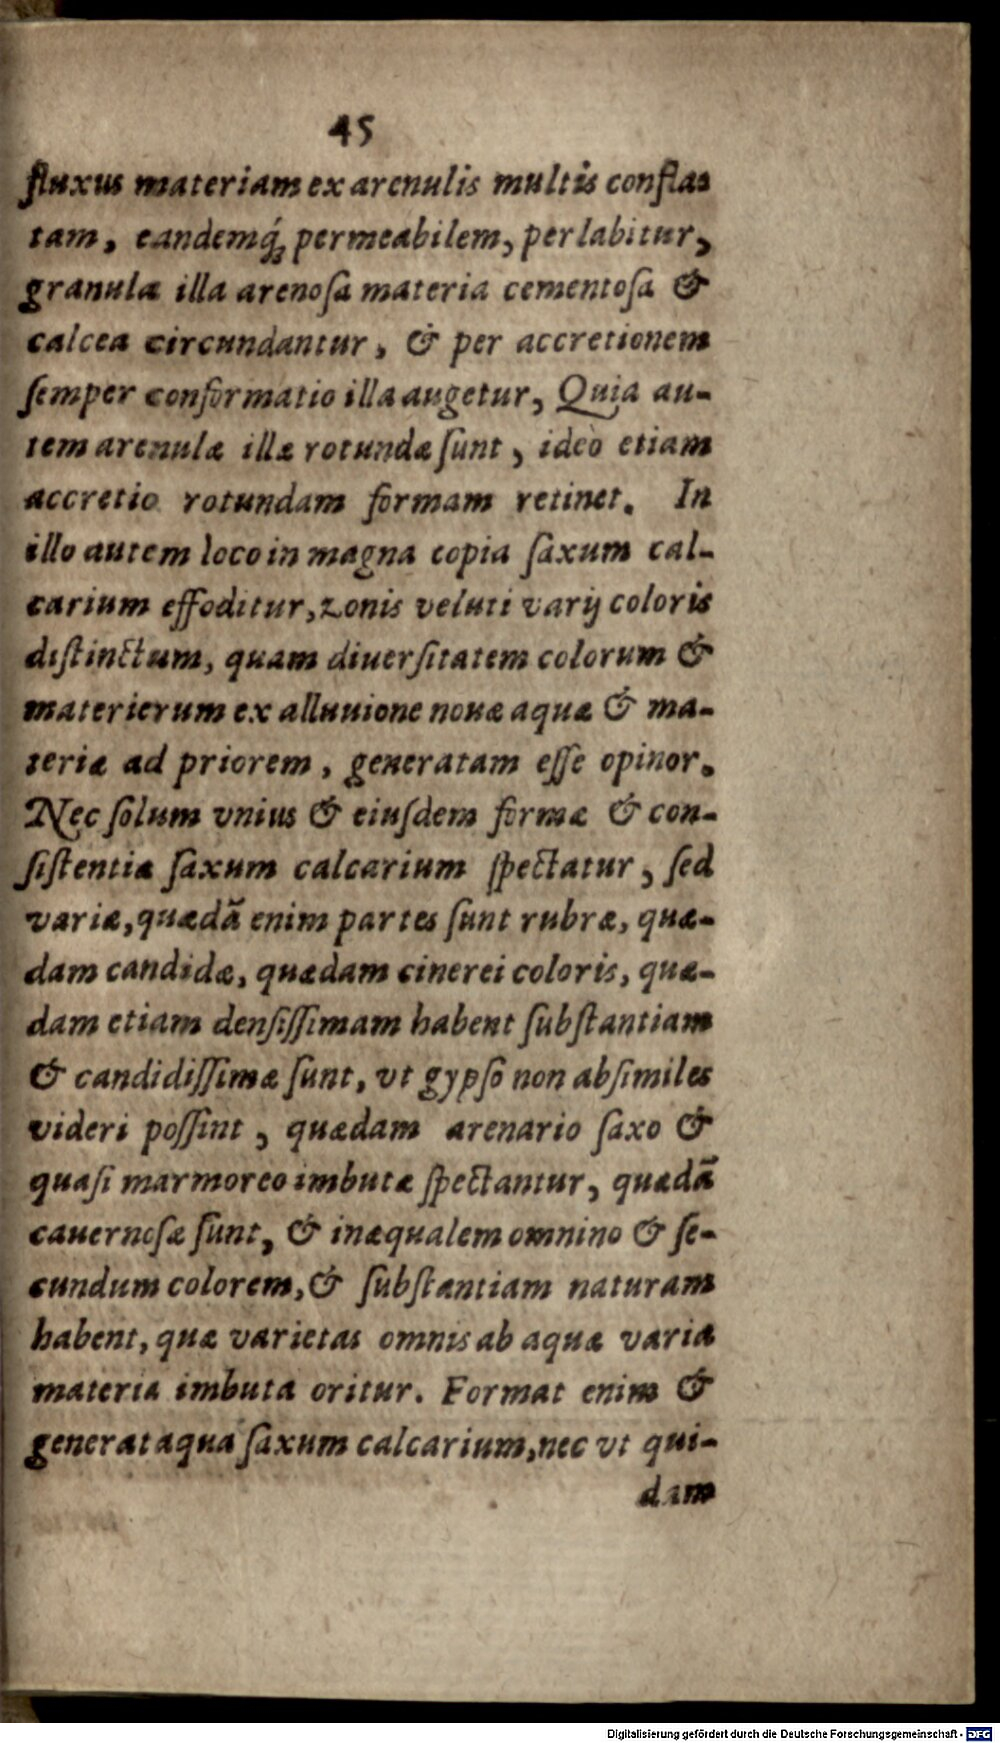 45
fluxus materiam ex arenulis multis confla-
tam, eandemq́; permeabilem, perlabitur,
granula illa arenoſa materia cementoſa &
calcea circundantur, & per accretionem
ſemper conformatio illa augetur, Quia au-
tem arenulæ illæ rotundæ ſunt, ideò etiam
accretio rotundam formam retinet. In
illo autem loco in magna copia ſaxum cal-
carium effoditur, zonis veluti varij coloris
diſtinctum, quam diuerſitatem colorum &
materierum ex alluuione nouæ aquæ & ma-
teriæ ad priorem, generatam eſſe opinor.
Nec ſolum vnius & eiuſdem formæ & con-
ſiſtentiæ ſaxum calcarium ſpectatur, ſed
variæ, quædã enim partes ſunt rubræ, quæ-
dam candidæ, quædam cinerei coloris, quæ-
dam etiam denſiſſimam habent ſubſtantiam
& candidiſſimæ ſunt, vt gypſo non abſimiles
videri poſſint, quædam arenario ſaxo &
quaſi marmoreo imbutæ ſpectantur, quædã
cauernoſæ ſunt, & inæqualem omnino & ſe-
cundum colorem, & ſubſtantiam naturam
habent, quæ varietas omnis ab aquæ varia
materia imbuta oritur. Format enim &
generat aqua ſaxum calcarium, nec vt qui-
dam
Digitalisierung gefördert durch die Deutsche Forschungsgemeinschaft - DFG